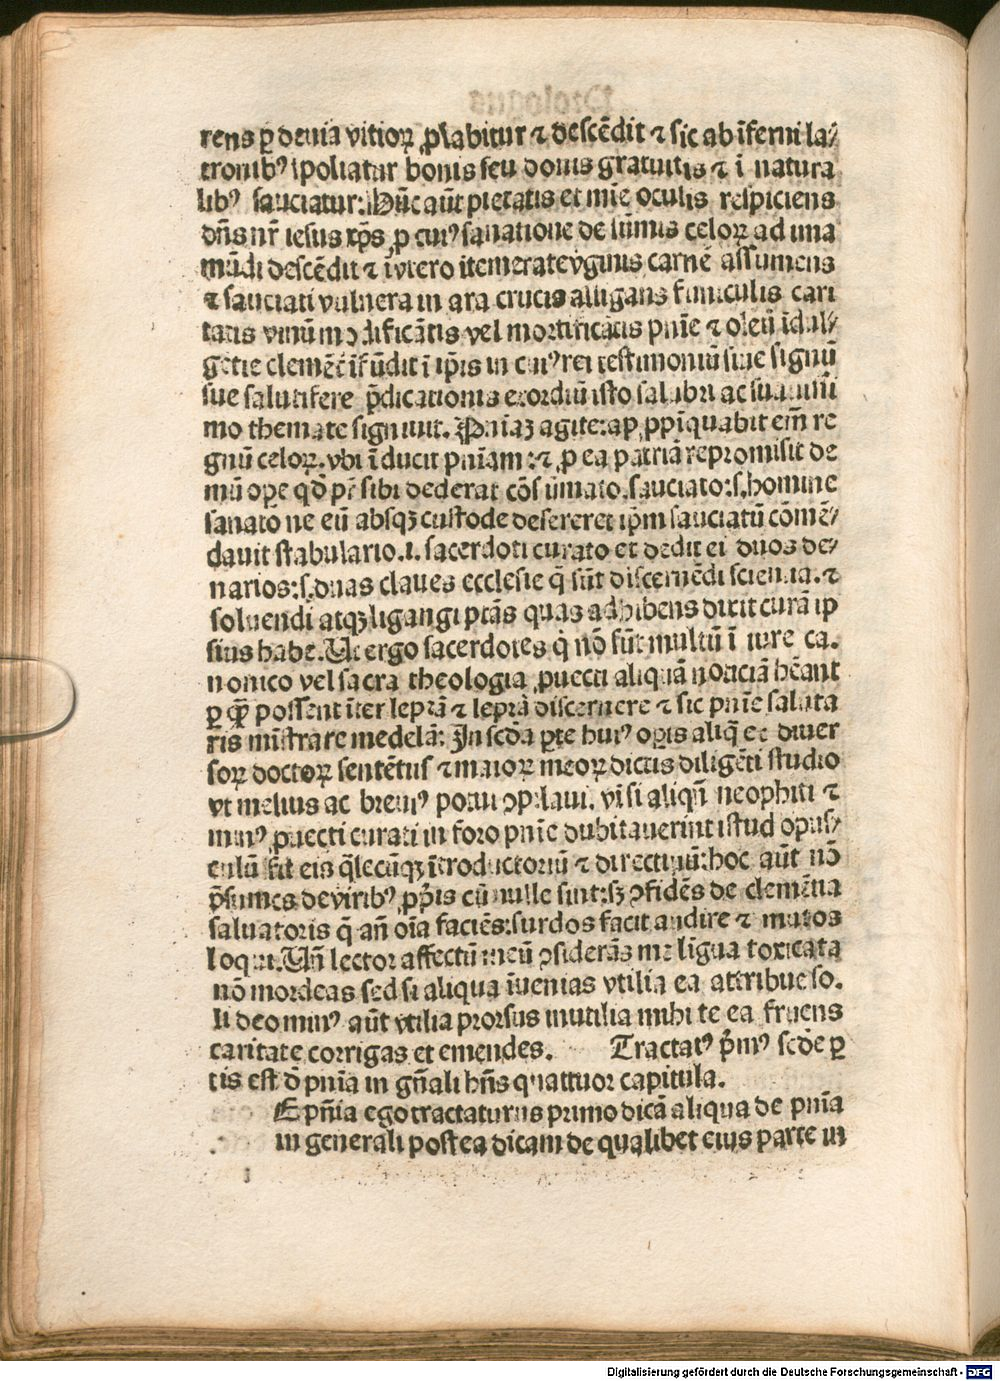 rens ꝑ deuia vitioꝝ ꝓlabitur ⁊ descēdit ⁊ sic ab īferni la⸗
tronibꝰ spoliatur bonis seu donis gratuitis ⁊ ī natura
libꝰ sauciatur: Hūc aūt pietatis et mīe oculis respiciens
dn̄s nr̄ iesus xp̄s ꝓ cuiꝰ sanatione de sūmis celoꝝ ad una
mūdi descēdit ⁊ ī vtero ītemerate v̄ginis carnē assumens
⁊ sauciati vulnera in ara crucis alligans funiculis cari
tatis vinū mōdificātis vel mortificātis pn̄ie ⁊ oleū īdul⸗
gētie clemēt̄ īfūdit ī ip̄is in cuiꝰ rei testimoniū siue signū
sue salutifere p̄dicationis exordiū isto salubri ac suauissi
mo themate signauit. Pn̄iaꝫ agite: apꝓpīquabit em̄ re
gnū celoꝝ. vbi īducit pn̄iam: ⁊ ꝓ ea patriā repromisit de
mū oꝑe qd̄ pr̄ sibi dederat cōsūmato. sauciato: s. homine
sanato ne eū absqꝫ custode desereret ip̄m sauciatū cōmē⸗
dauit stabulario. i. sacerdoti curato et dedit ei duos de⸗
narios: s. duas claues ecclesie q̄ sūt discernēdi scientia. ⁊
soluendi atqꝫ ligangi ptās quas adhibens dixit curā ip
sius habe. Ut ergo sacerdotes q̇ nō sūt multū ī iure ca.
nonico vel sacra theologia ꝓuecti aliquā noticiā hēant
ꝑ quā possent īter leprā ⁊ leprā discernere ⁊ sic pn̄ie saluta
ris mīstrare medelā: In scd̄a ꝑte huiꝰ oꝑis aliq̄ ex diuer
soꝝ doctoꝝ sentētiis ⁊ maioꝝ meoꝝ dictis diligēti studio
vt melius ac breuiꝰ potui ꝯpilaui. vt si aliqn̄ neophiti ⁊
minꝰ ꝓuecti curati in foro pn̄ie dubitauerint istud opus⸗
culū sit eis q̄lecūqꝫ ītroductoriū ⁊ directiuū: hoc aūt nō
p̄sumes de viribꝰ ꝓp̄is cū nulle sint: sꝫ ꝯfidēs de clemētia
saluatoris q̄ an̄ oīa faciēs: surdos facit audire ⁊ mutos
loqui. Un̄ lector affectū meū ꝯsiderās me līgua toxicata
nō mordeas sed si aliqua īuenias vtilia ea attribue so.
li deo minꝰ aūt vtilia prorsus inutilia mihi te ea fruens
caritate corrigas et emendes. Tractatꝰ p̄mꝰ scd̄e ꝑ
tis est d̄ pn̄ia in gn̄ali hn̄s quattuor capitula.
E pn̄ia ego tractaturus primo dicā aliqua de pn̄ia
in generali postea dicam de qualibet eius parte in